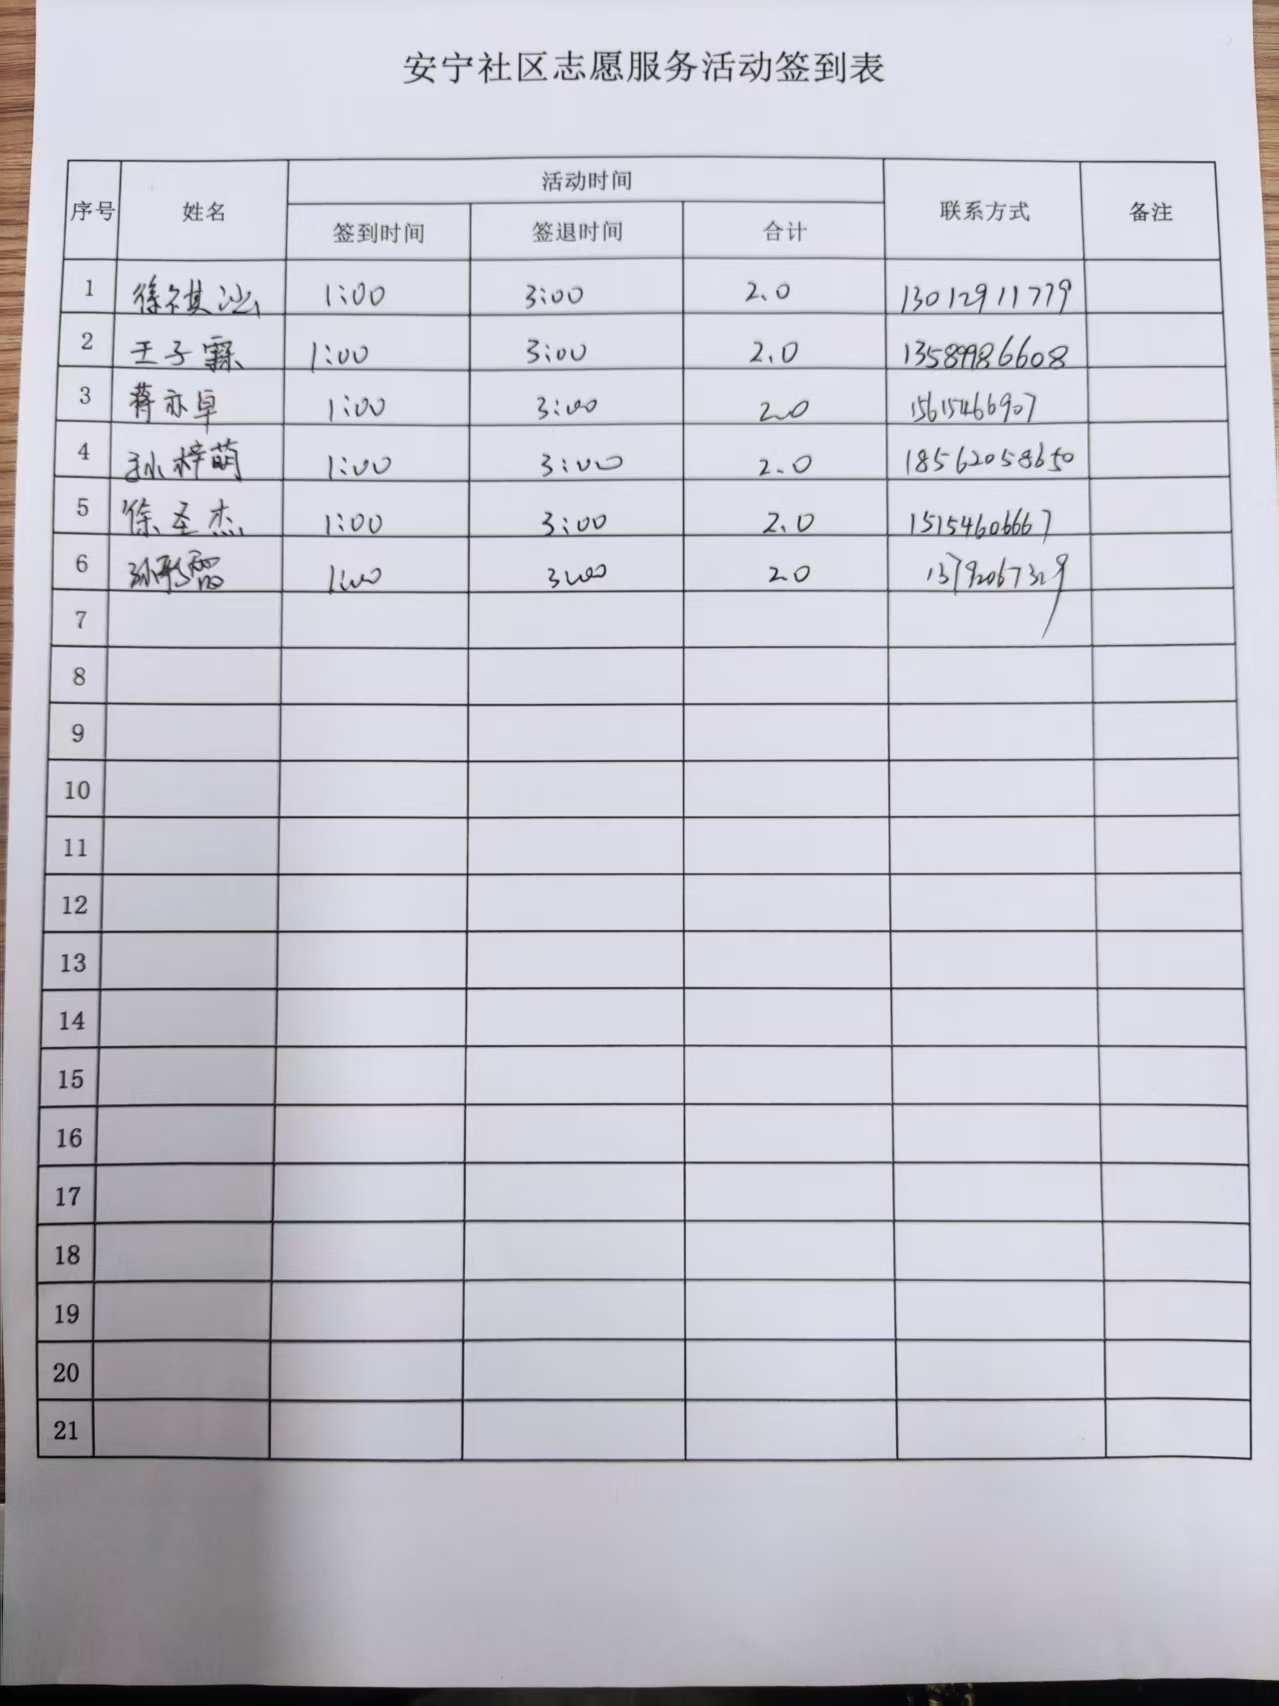 安宁社区志愿服务活动签到表
序号 姓名 活动时间 联系方式 备注
签到时间 签退时间 合计
1 徐祺 1:00 3:00 2.0 13012911779
2 王子霖 1:00 3:00 2.0 13589986608
3 蒋亦卓 1:00 3:00 2.0 15615466907
4 孙梓萌 1:00 3:00 2.0 18562058650
5 徐圣杰 1:00 3:00 2.0 15154606667
6 孙彤霞 1:00 3:00 2.0 13792067329
7
8
9
10
11
12
13
14
15
16
17
18
19
20
21